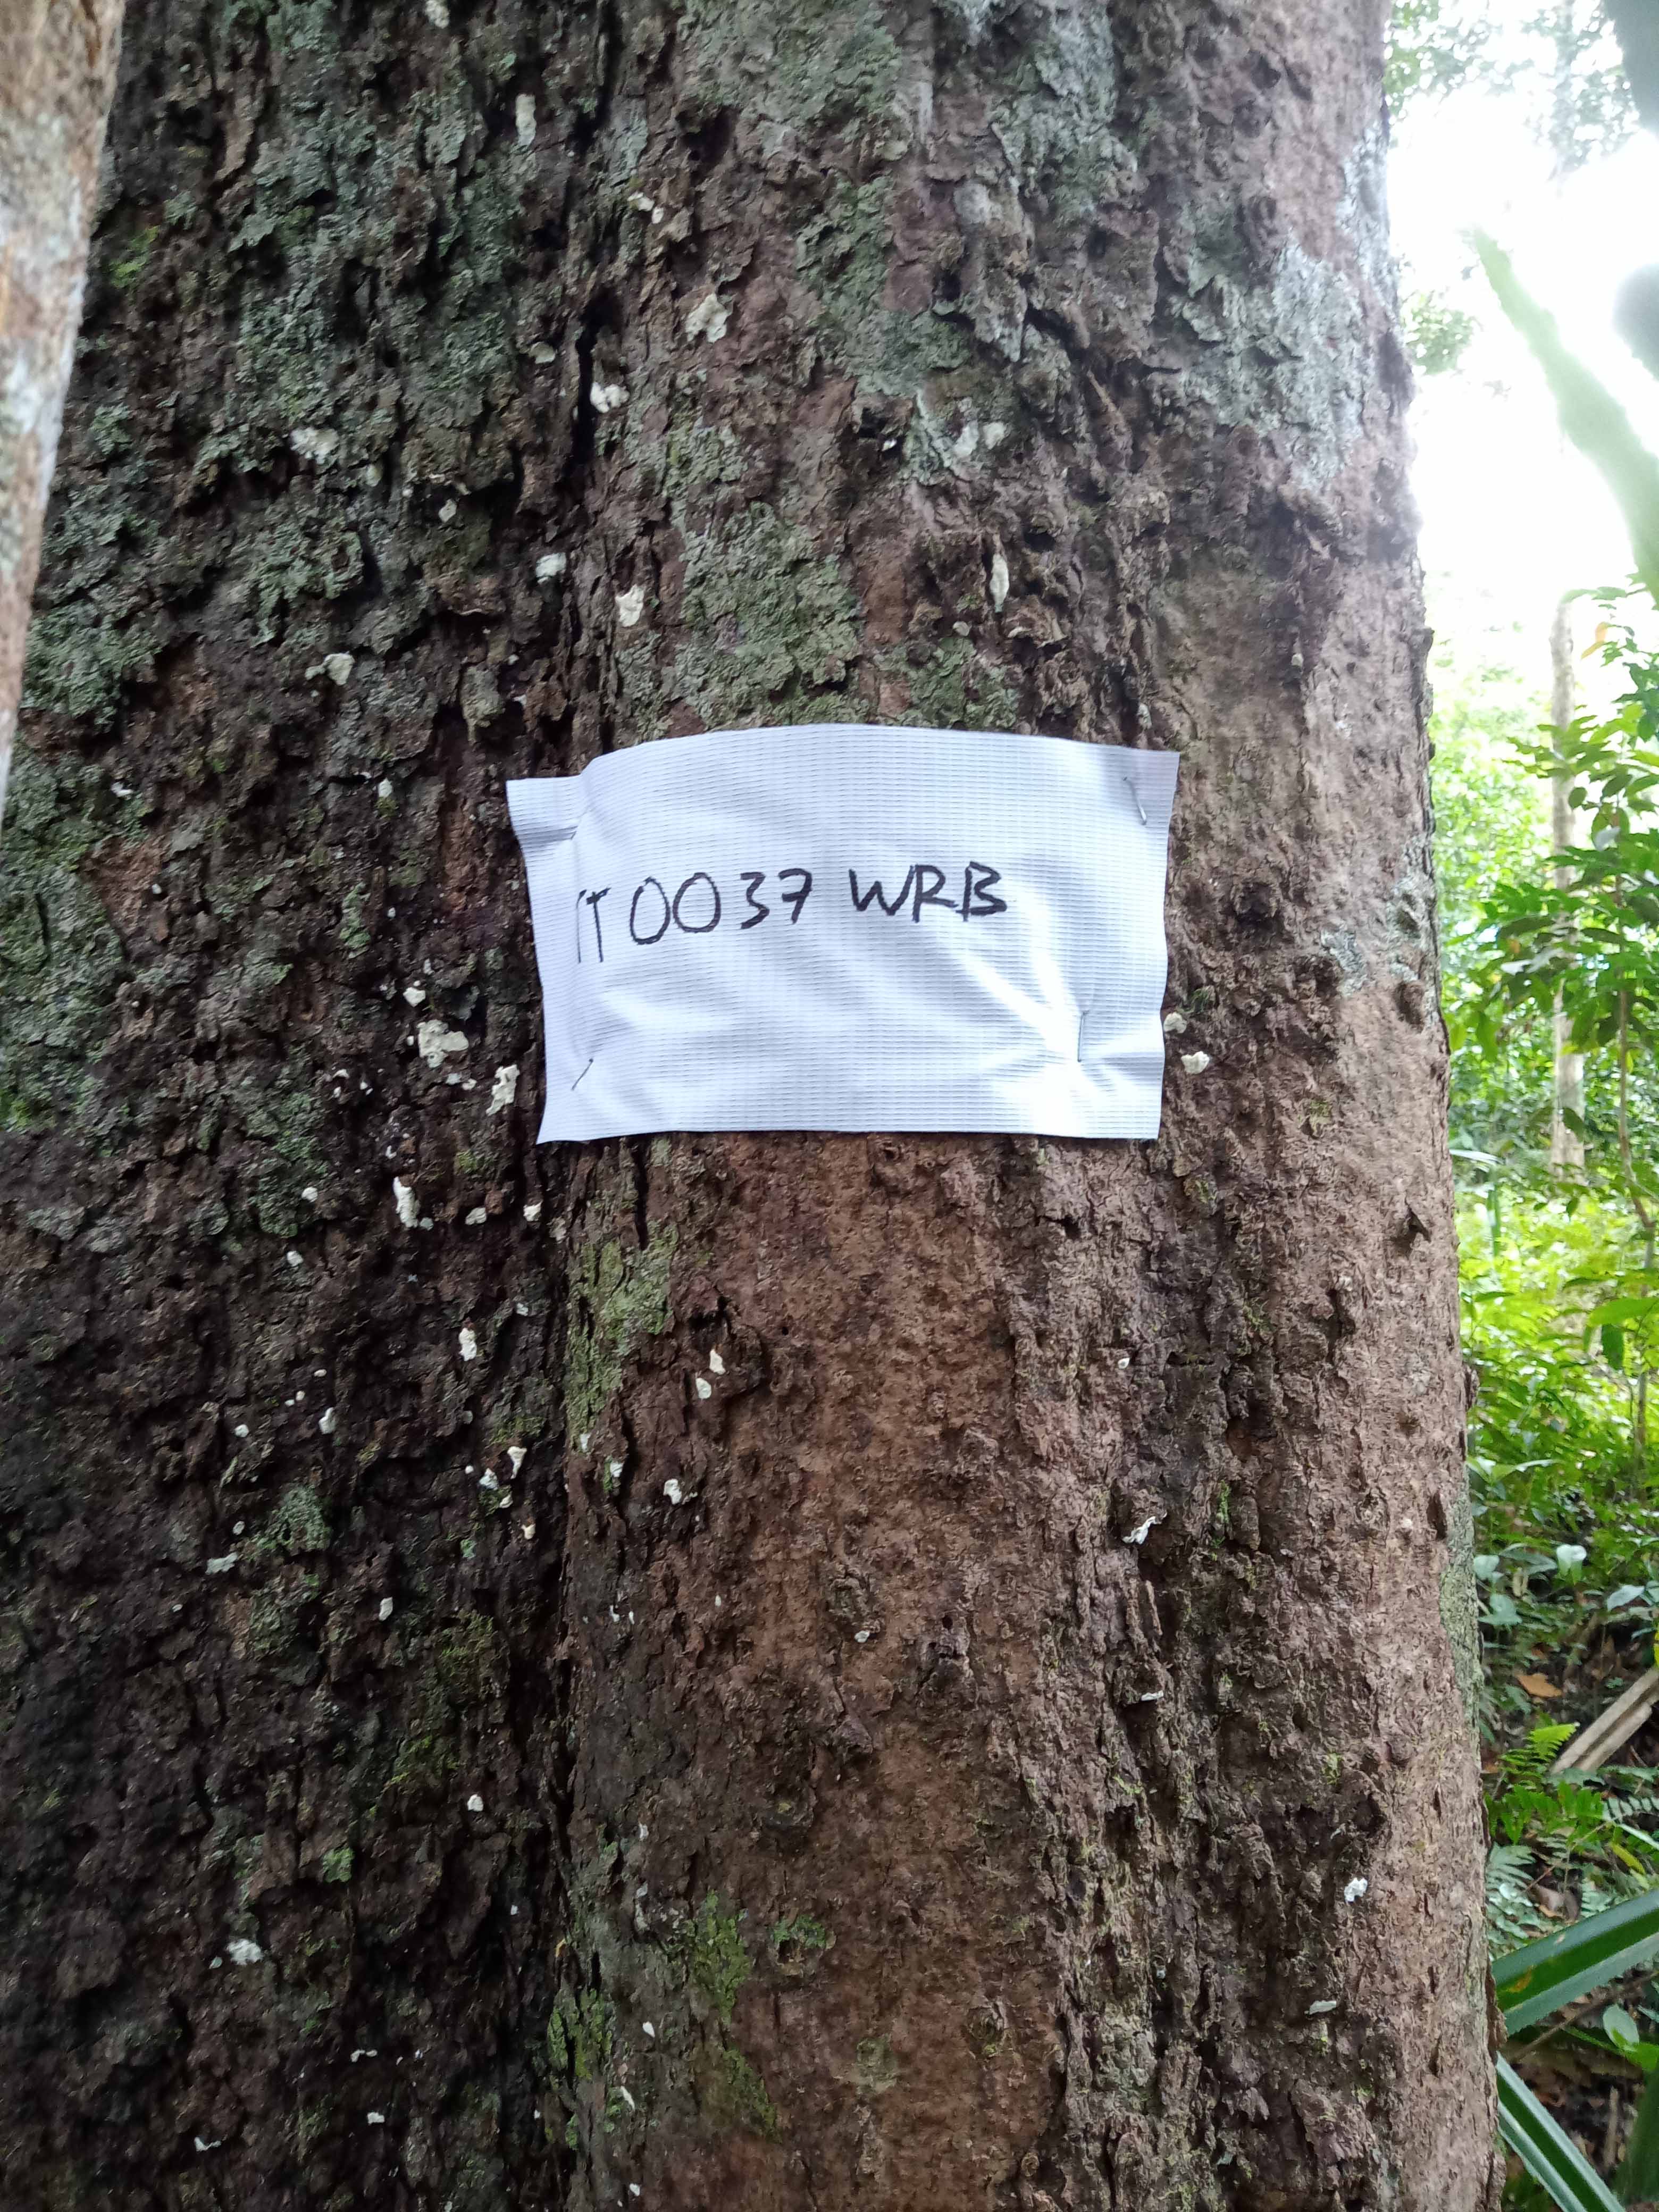 IT0037 WRB